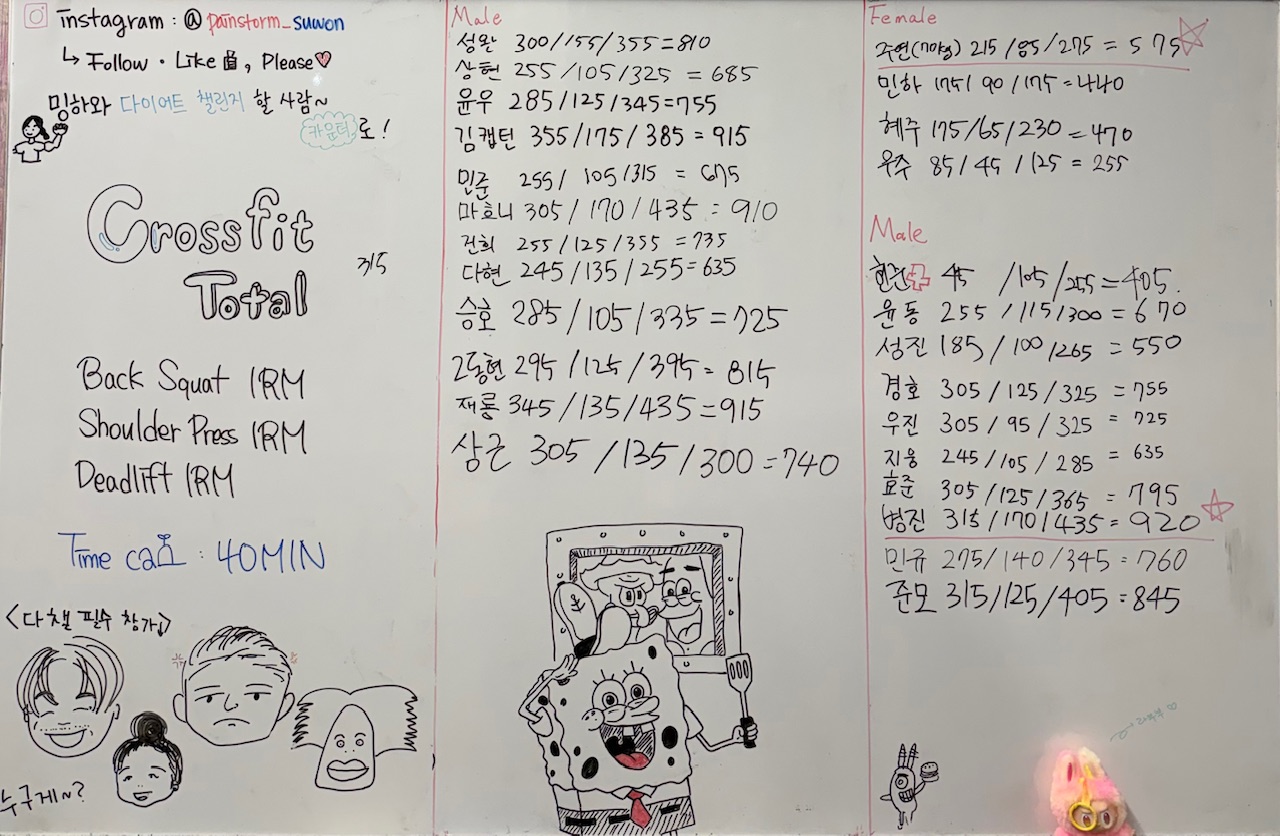 instagram : @painstorm_suwon
↳ Follow · Like, Please
밍하와 다이어트 챌린지 할 사람~
카운터로!
Crossfit
Total
315
Back Squat 1RM
Shoulder Press 1RM
Deadlift 1RM
Time cap : 40MIN
<다챌 필수 참가>
누구게~?
Male
성완 300/155/355=810
상현 255/105/325 = 685
윤우 285/125/345=755
김캡틴 355/175/385 = 915
민준 255/105/315 = 675
마호니 305/170/435 = 910
건희 255/125/355 = 735
다현 245/135/255=635
승호 285/105/335=725
2동현 295/125/395= 815
재룡 345/135/435=915
상근 305/135/300=740
Female
주연 215/85/275 = 575
민하 175/90/175=440
혜주 175/65/230 = 470
우주 85/45/125 = 255
Male
45/105/255=405.
윤동 255/115/300=670
성진 185/100/265 = 550
경호 305/125/325 = 755
우진 305/95/325 = 725
지웅 245/105/285 = 635
효준 305/125/365 = 795
병진 315/170/435=920
민규 275/140/345=760
준모 315/125/405=845